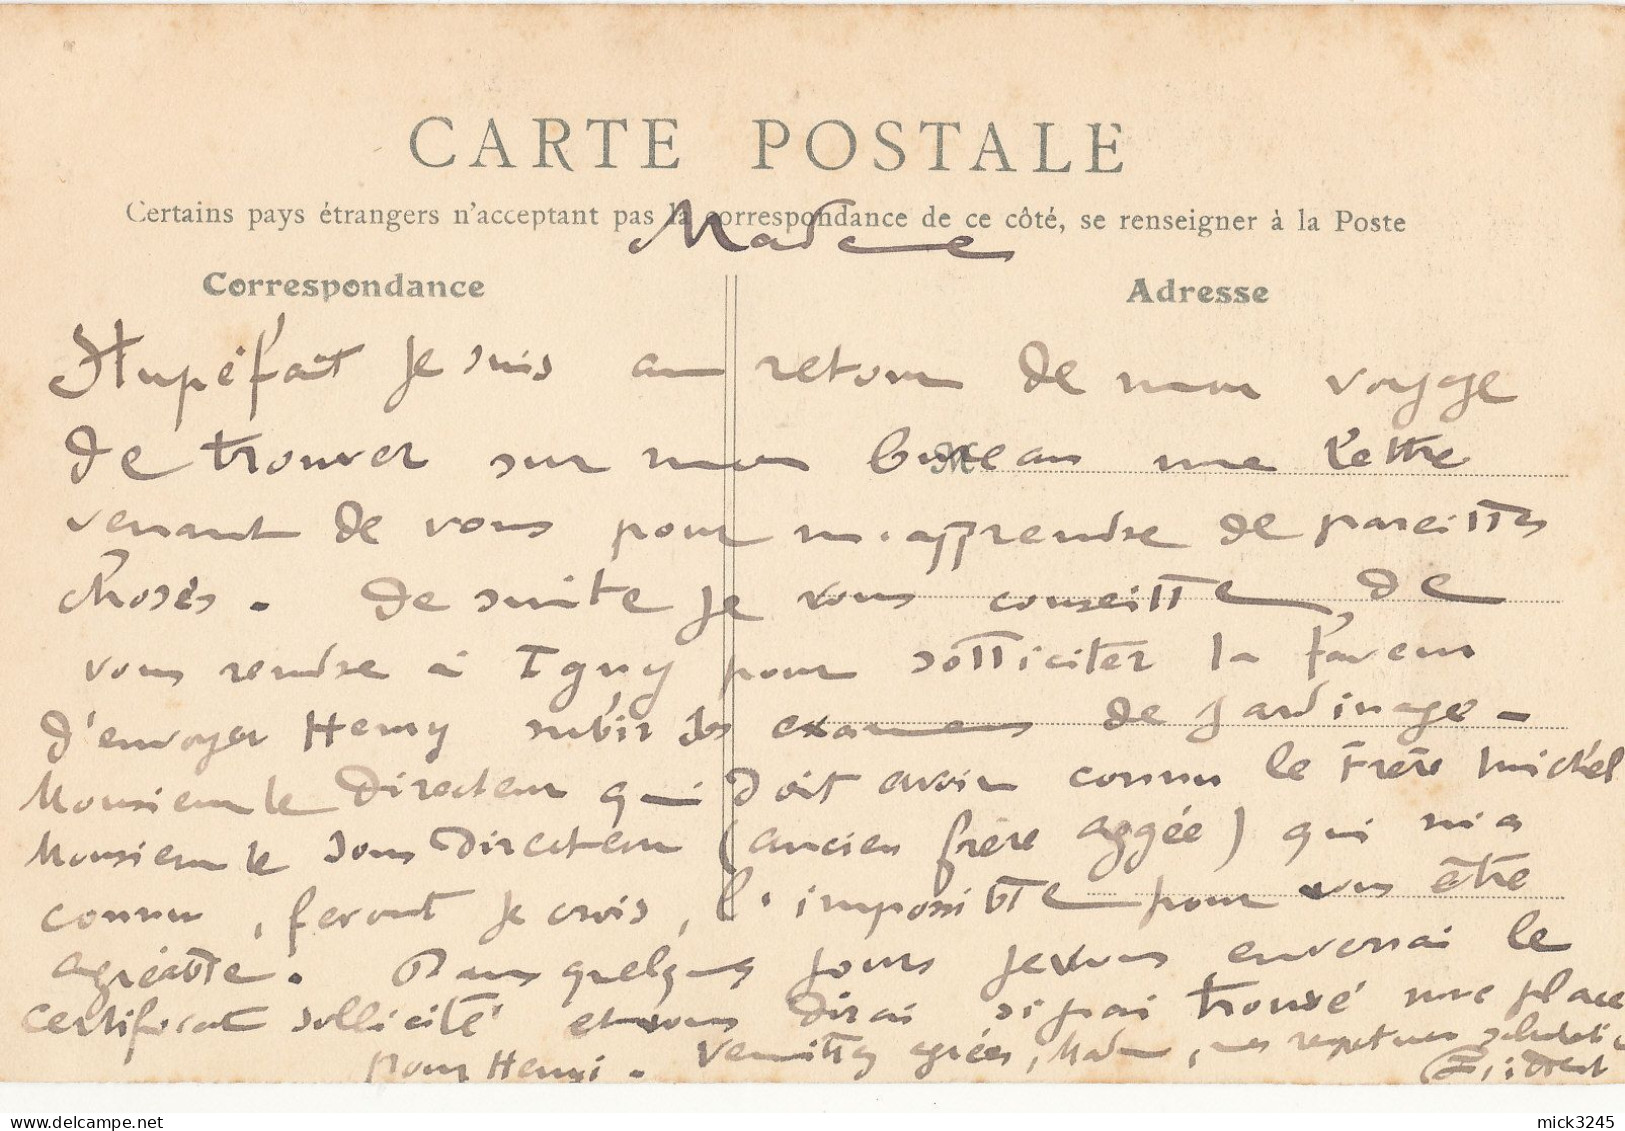 CARTE POSTALE
Certains pays étrangers n'acceptant pas la correspondance de ce côté, se renseigner à la Poste
Madame
Correspondance
Adresse
Stupéfait je suis au retour de mon voyage
de trouver sur mon bureau une lettre
M
venant de vous pour m'apprendre de pareilles
choses. De suite je vous conseille, de
vous rendre à Igny pour solliciter la faveur
d'envoyer Henry subir des examens de jardinage.
Monsieur le Directeur qui doit avoir connu le Frère Michel
Monsieur le Sous Directeur (ancien frère Aggée) qui m'a
connu, feront je crois, l'impossible pour vous être
agréable. Dans quelques jours je vous enverrai le
certificat sollicité et vous dirai si j'ai trouvé une place
pour Henri. Veuillez agréer, Madame, mes respectueuses salutations
mick3245